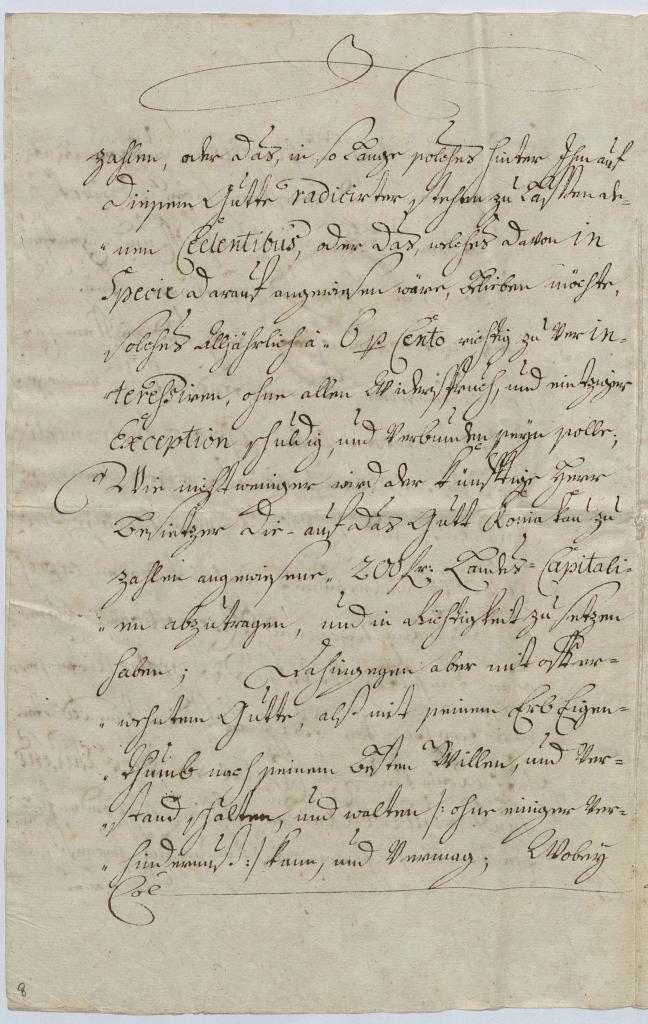 zahlen, oder das, in so lange solches hinter Ihm auf
diesem Gutte radicirter stehen zu lassen de-
"nen Cedentibus, oder das, welches davon in
Specie darauf angewiesen wäre, blieben möchte,
solches alljährlich à 6 p Cento richtig zu Ver in-
"teressiren, ohne allen Widerspruch, und eintziger
Exception schuldig, und Verbunden seyn solle;
Wie nicht weniger wird der künfftige Herr
Besietzer die auf das Gutt zu
zahlen angewiesene 200 fr: Landes-Capitali-
"en abzutragen, und in Richtigkeit zu setzen
haben; Dahingegen aber mit offt er-
"wehntem Gutte, alß mit seinem Erb Eigen-
"thumb nach seinem besten Willen, und Ver-
"stand schalten, und walten /: ohne einiger Ver-
"hindernuß :/ kann, und Vermag; Wobey
8